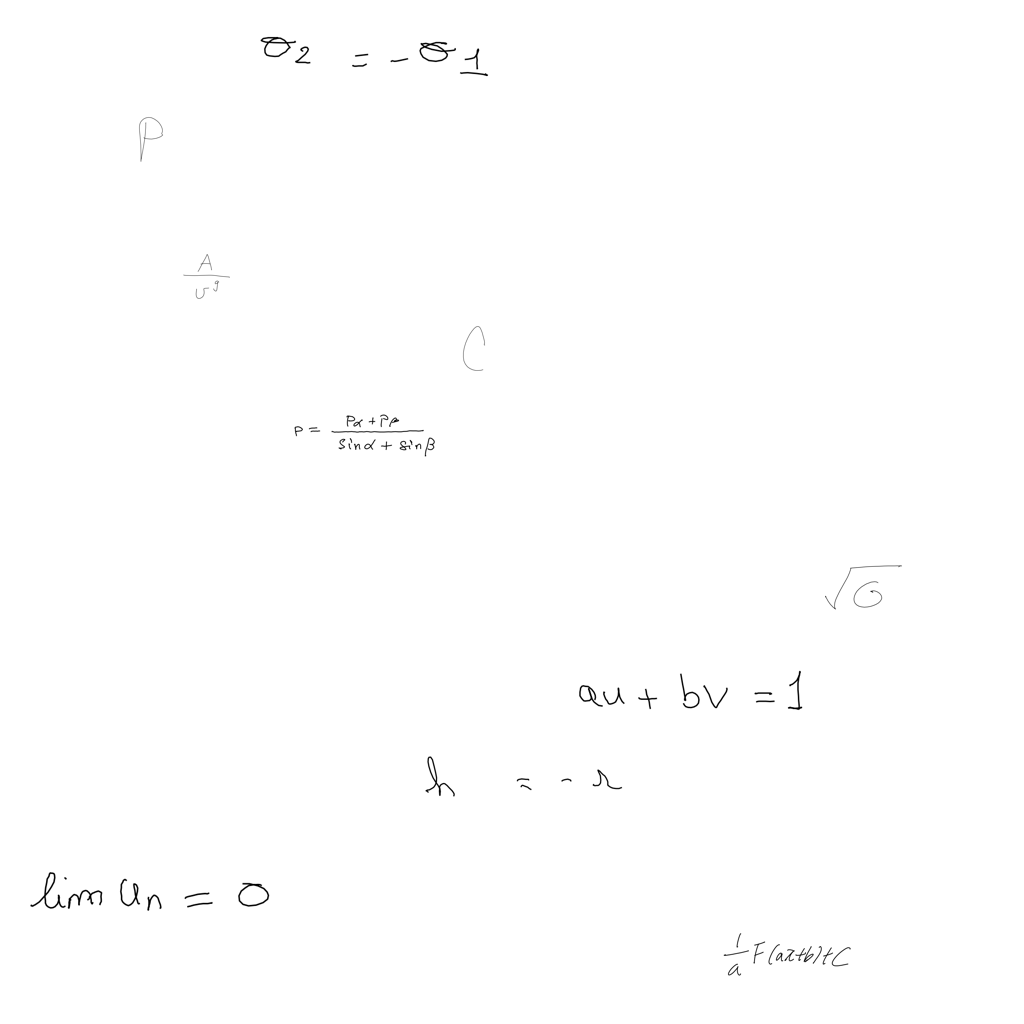 σ₂ = -σ₁
P
A/v⁹
C
P = (Pα + Pβ)/(sinα + sinβ)
√G
au + bv = 1
h = -r
lim Uₙ = 0
1/a F(ax+b)+C